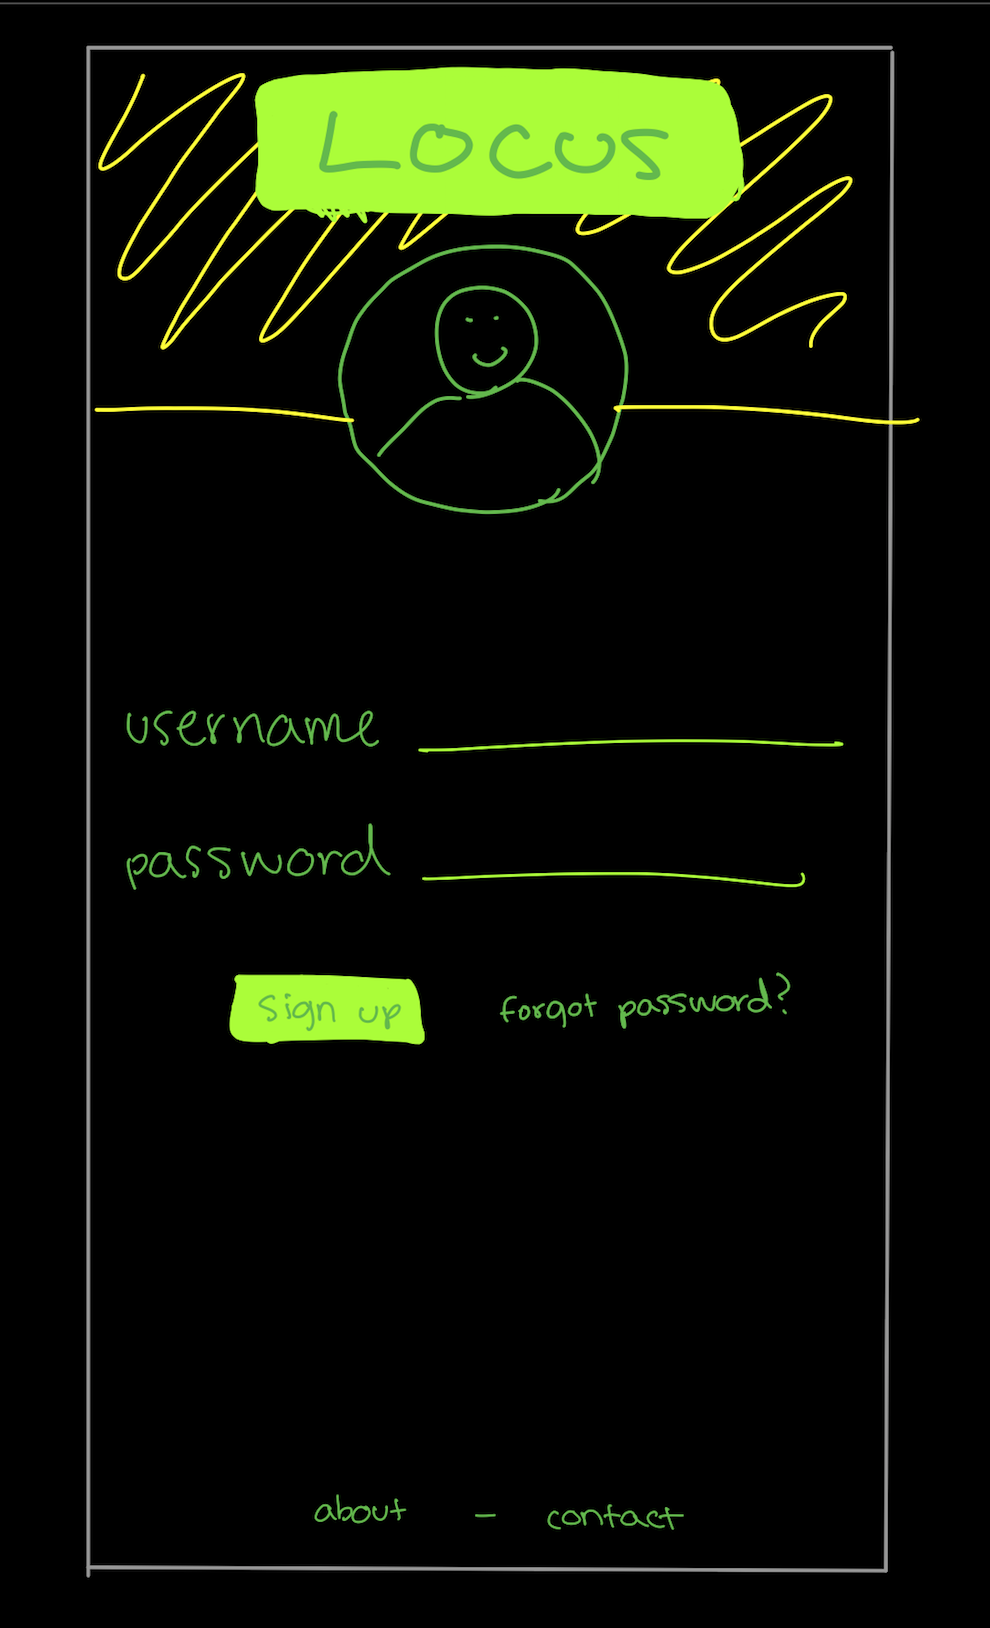 LOCUS
username
password
sign up forgot password?
about - contact